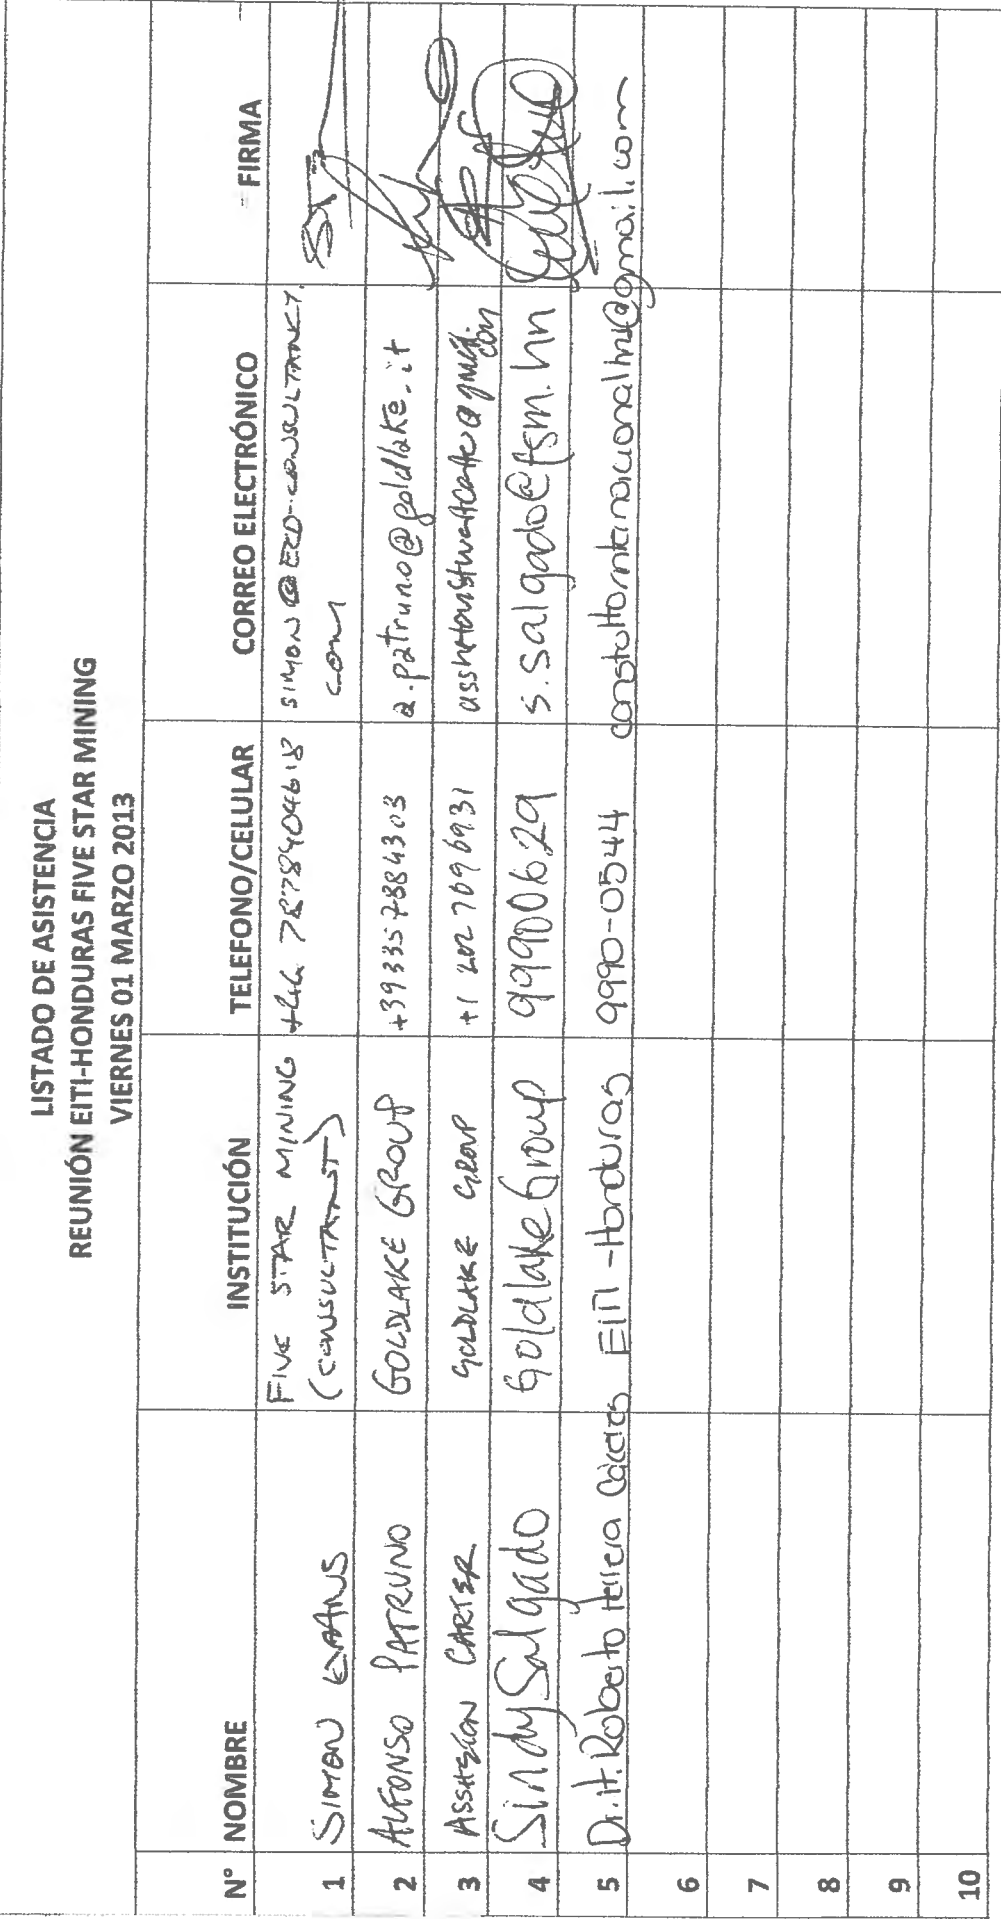 LISTADO DE ASISTENCIA
REUNIÓN EITI-HONDURAS FIVE STAR MINING
VIERNES 01 MARZO 2013
N° NOMBRE INSTITUCIÓN TELEFONO/CELULAR CORREO ELECTRÓNICO FIRMA
1 SIMON EVANS FIVE STAR MINING (CONSULTANT) +44 7878404618 SIMON@ECO-CONSULTANCY.
com
2 ALFONSO PATRUNO GOLDLAKE GROUP +393357884303 a.patruno@goldlake.it
3 ASSHETON CARTER GOLDLAKE GROUP +1 202 7096931
4 Sindy Salgado Goldlake Group 99900629 s.salgado@fsm.hn
5 Dr. H. Roberto Herrera Cáceres EITI-Honduras 9990-0544
6
7
8
9
10